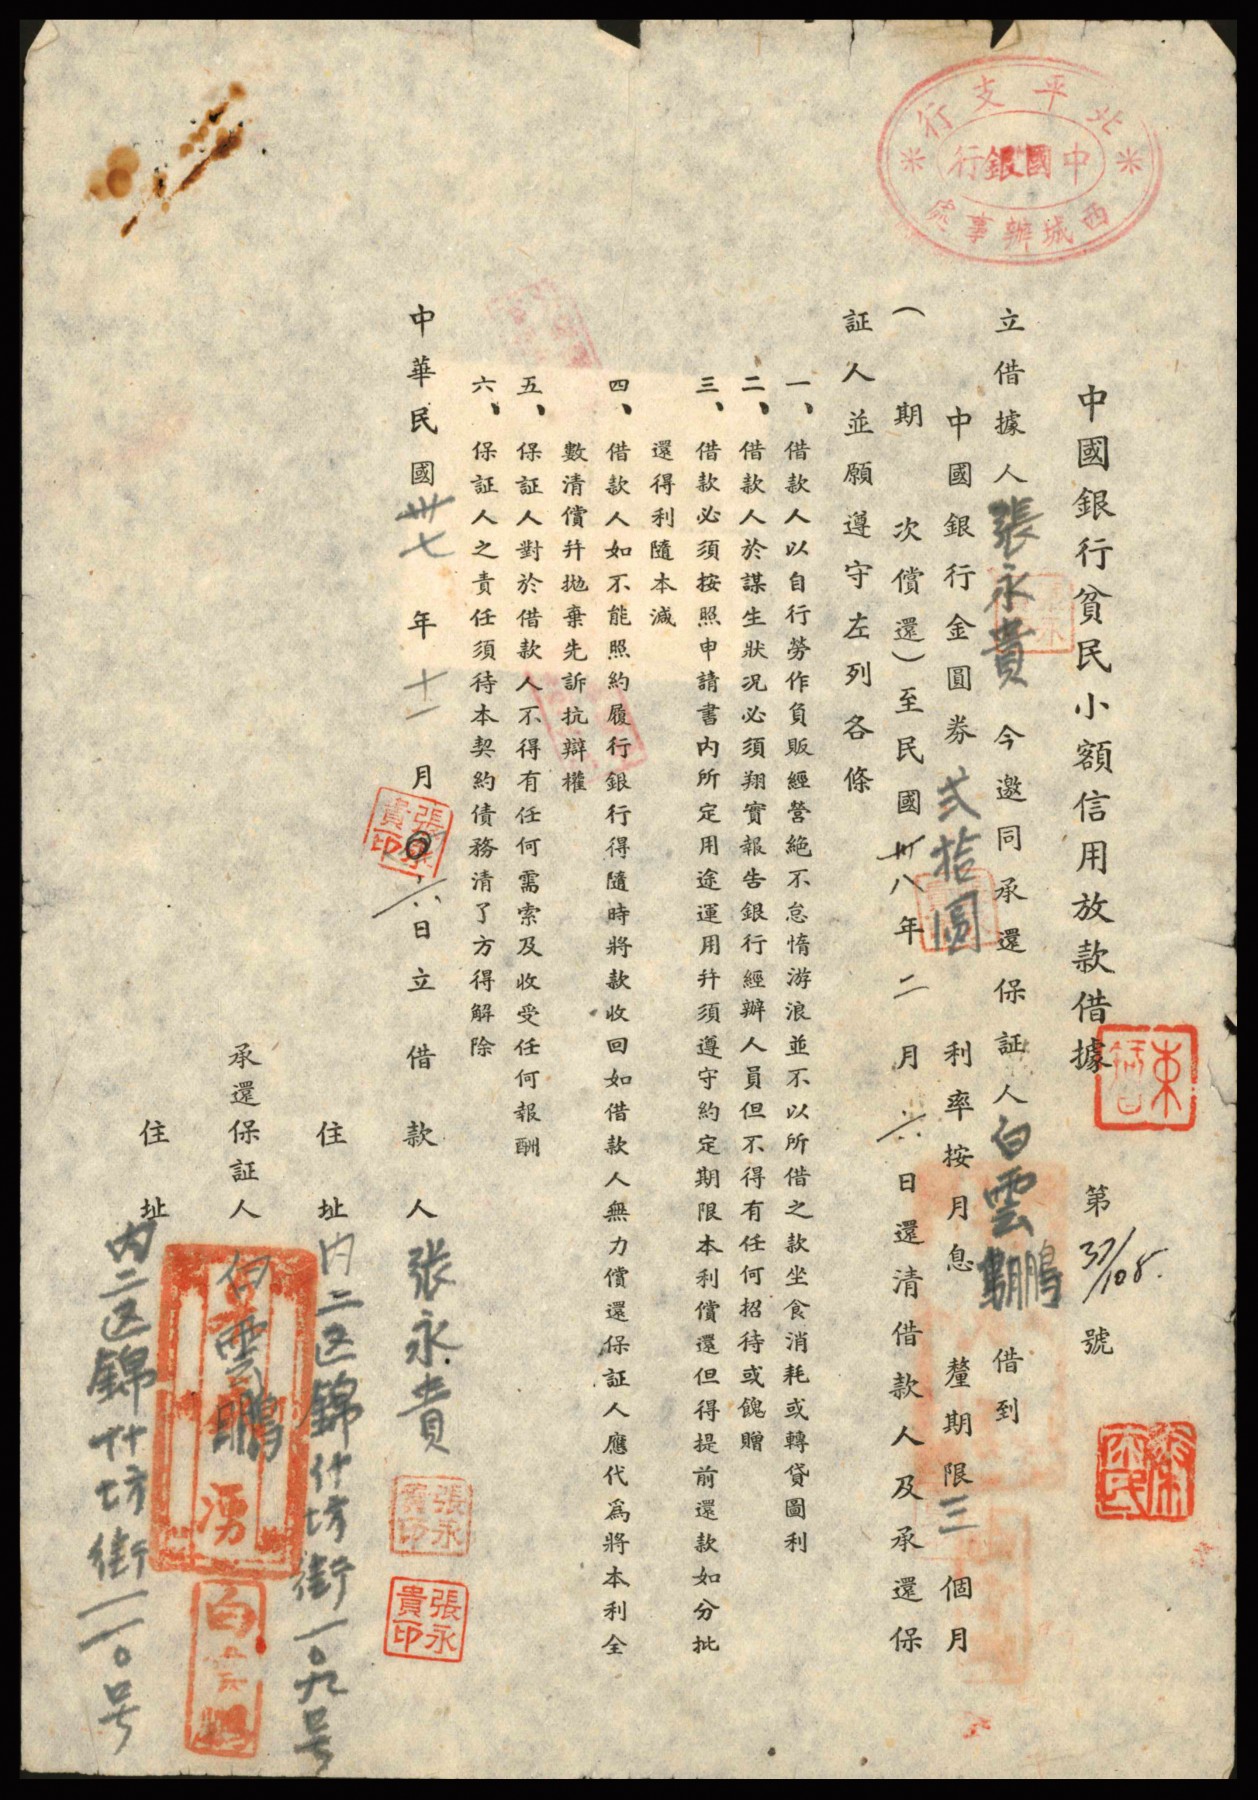 北平支行
中國銀行
西城辦事處
中國銀行貧民小額信用放款借據 第37/108.號
立借據人張永貴今邀同承還保証人白雲鵬借到
中國銀行金圓券弍拾圓 利率按月息 釐期限三個月
（ 期 次償還）至民國卅八年二月六日還清借款人及承還保
証人並願遵守左列各條
一、借款人以自行勞作負販經營絶不怠惰游浪並不以所借之款坐食消耗或轉貸圖利
二、借款人於謀生狀况必須翔實報告銀行經辦人員但不得有任何招待或餽贈
三、借款必須按照申請書内所定用途運用幷須遵守約定期限本利償還但得提前還款如分批
還得利隨本減
四、借款人如不能照約履行銀行得隨時將款收回如借款人無力償還保証人應代爲將本利全
數清償幷拋棄先訴抗辯權
五、保証人對於借款人不得有任何需索及收受任何報酬
六、保証人之責任須待本契約債務清了方得解除
中華民國卅七年十一月六日立借款人張永貴
張永貴印
張永貴印
張永貴印
住址内二区錦什坊街一〇九号
承還保証人白雲鵬
住址内二区錦什坊街一一〇号